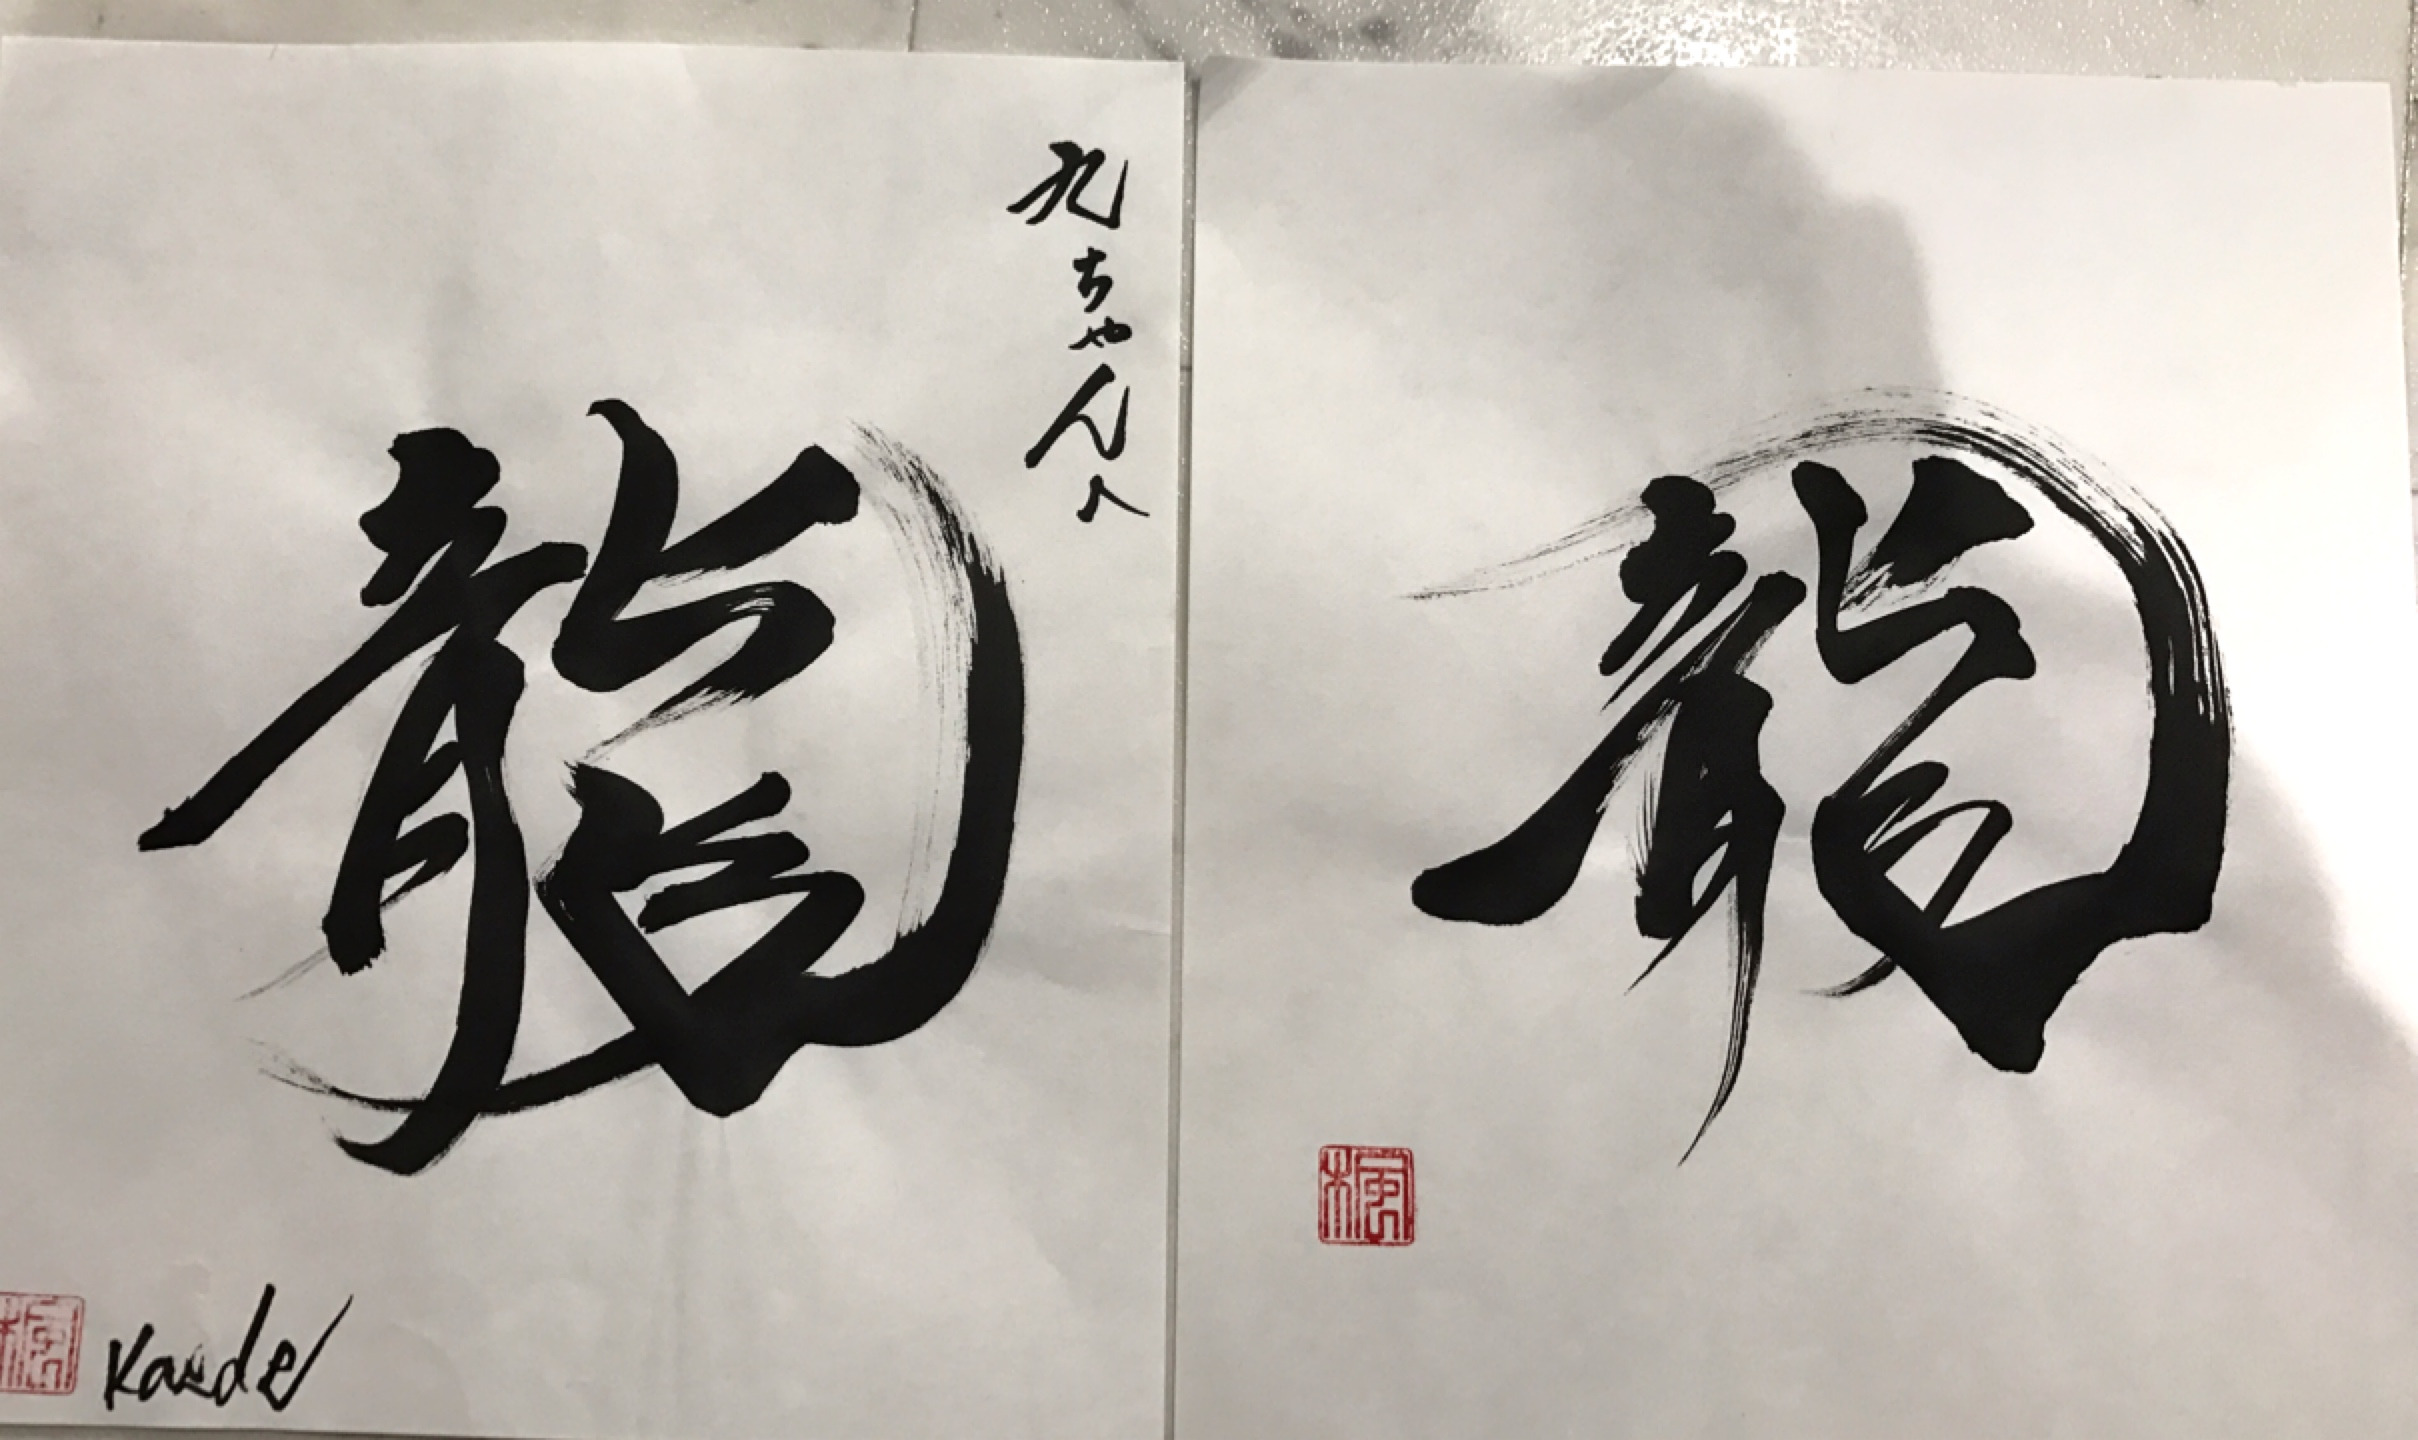 九ちゃんへ
龍
楓
Kaede
龍
楓